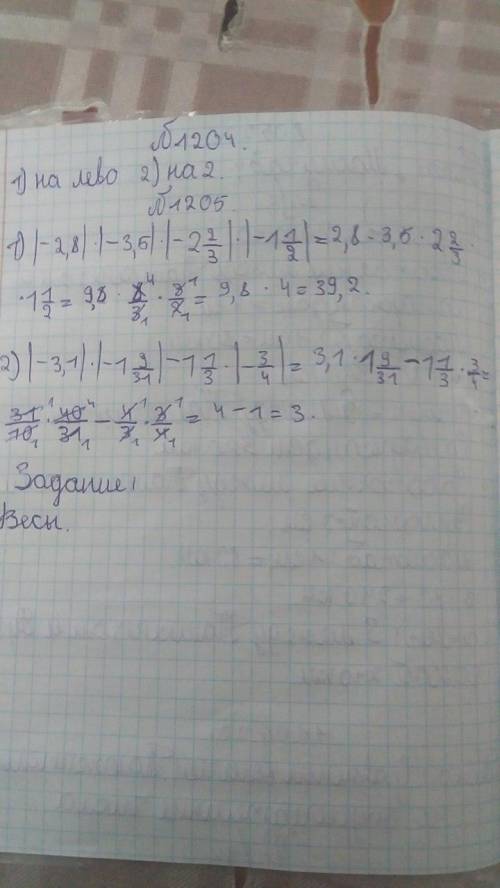 №1204.
1) на лево 2) на 2.
№1205
1) |-2,8|·|-3,5|·|-2 2/3|·|-1 1/2|=2,8·3,5·2 2/3·
·1 1/2= 9,8·8/3·3/2= 9,8·4=39,2.
2) |-3,1|·|-1 9/31|-1 1/3·|-3/4|= 3,1·1 9/31-1 1/3·3/4=
31/10·40/31-4/3·3/4= 4-1=3.
Задание1
Весы.